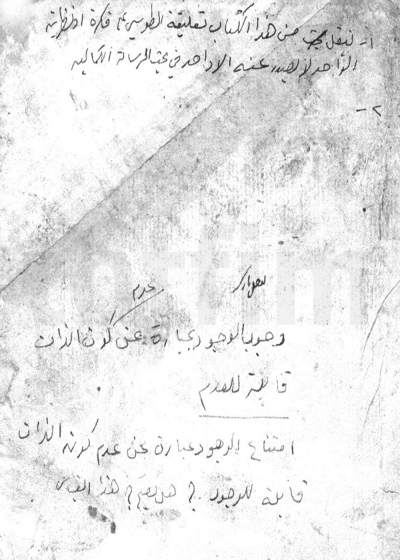 ١ - لننقل من هذا الكتاب تعليقة الطوسي على فكرة او نظرية
الواحد لا يصدر عنه الا واحد في بحث الرسالة الكمالية
٢ -
عدم
وجوب الوجود عبارة عن كون الذات
قابلة للعدم
امتناع الوجود عبارة عن عدم كون الذات
قابلة للوجود ؟ هل يصح ؟ هذا القياس